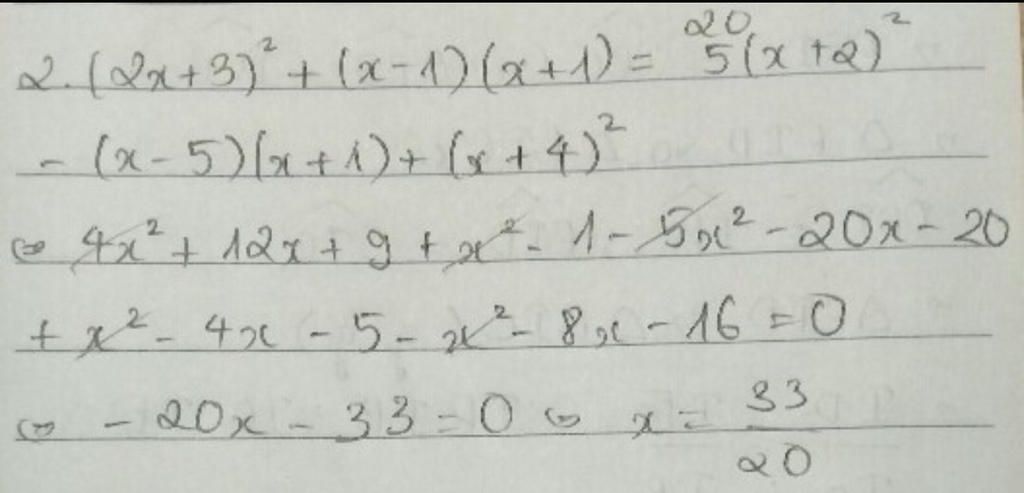 2. (2x+3)² + (x-1)(x+1) = 5(x+2)²
20
- (x-5)(x+1) + (x+4)²
⇔ 4x² + 12x + 9 + x² - 1 - 5x² - 20x - 20
+ x² - 4x - 5 - x² - 8x - 16 = 0
⇔ - 20x - 33 = 0 ⇔ x = 33/20